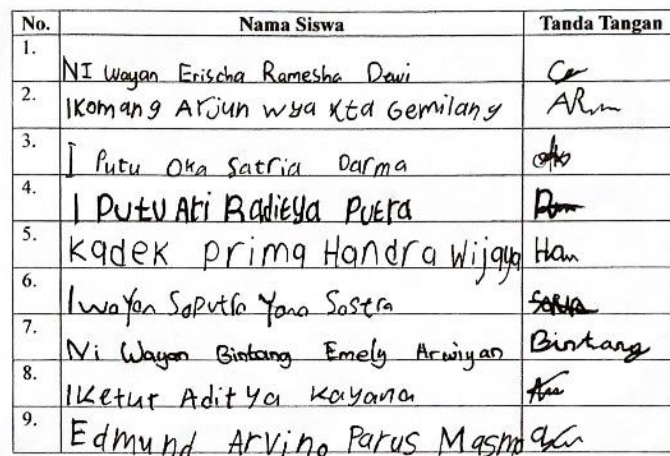 No. Nama Siswa Tanda Tangan
1. NI Wayan Erischa Ramesha Dewi
2. I Komang Arjun wya kta Gemilang ARm
3. I Putu Oka Satria Darma
4. I Putu Ari Raditya Putra
5. Kadek prima Handra Wijaya Han
6. I wayan Saputra Yana Sastra
7. Ni Wayan Bintang Emely Arwiyan Bintang
8. I Ketut Aditya Kayana
9. Edmund Arvino Parus Masmo